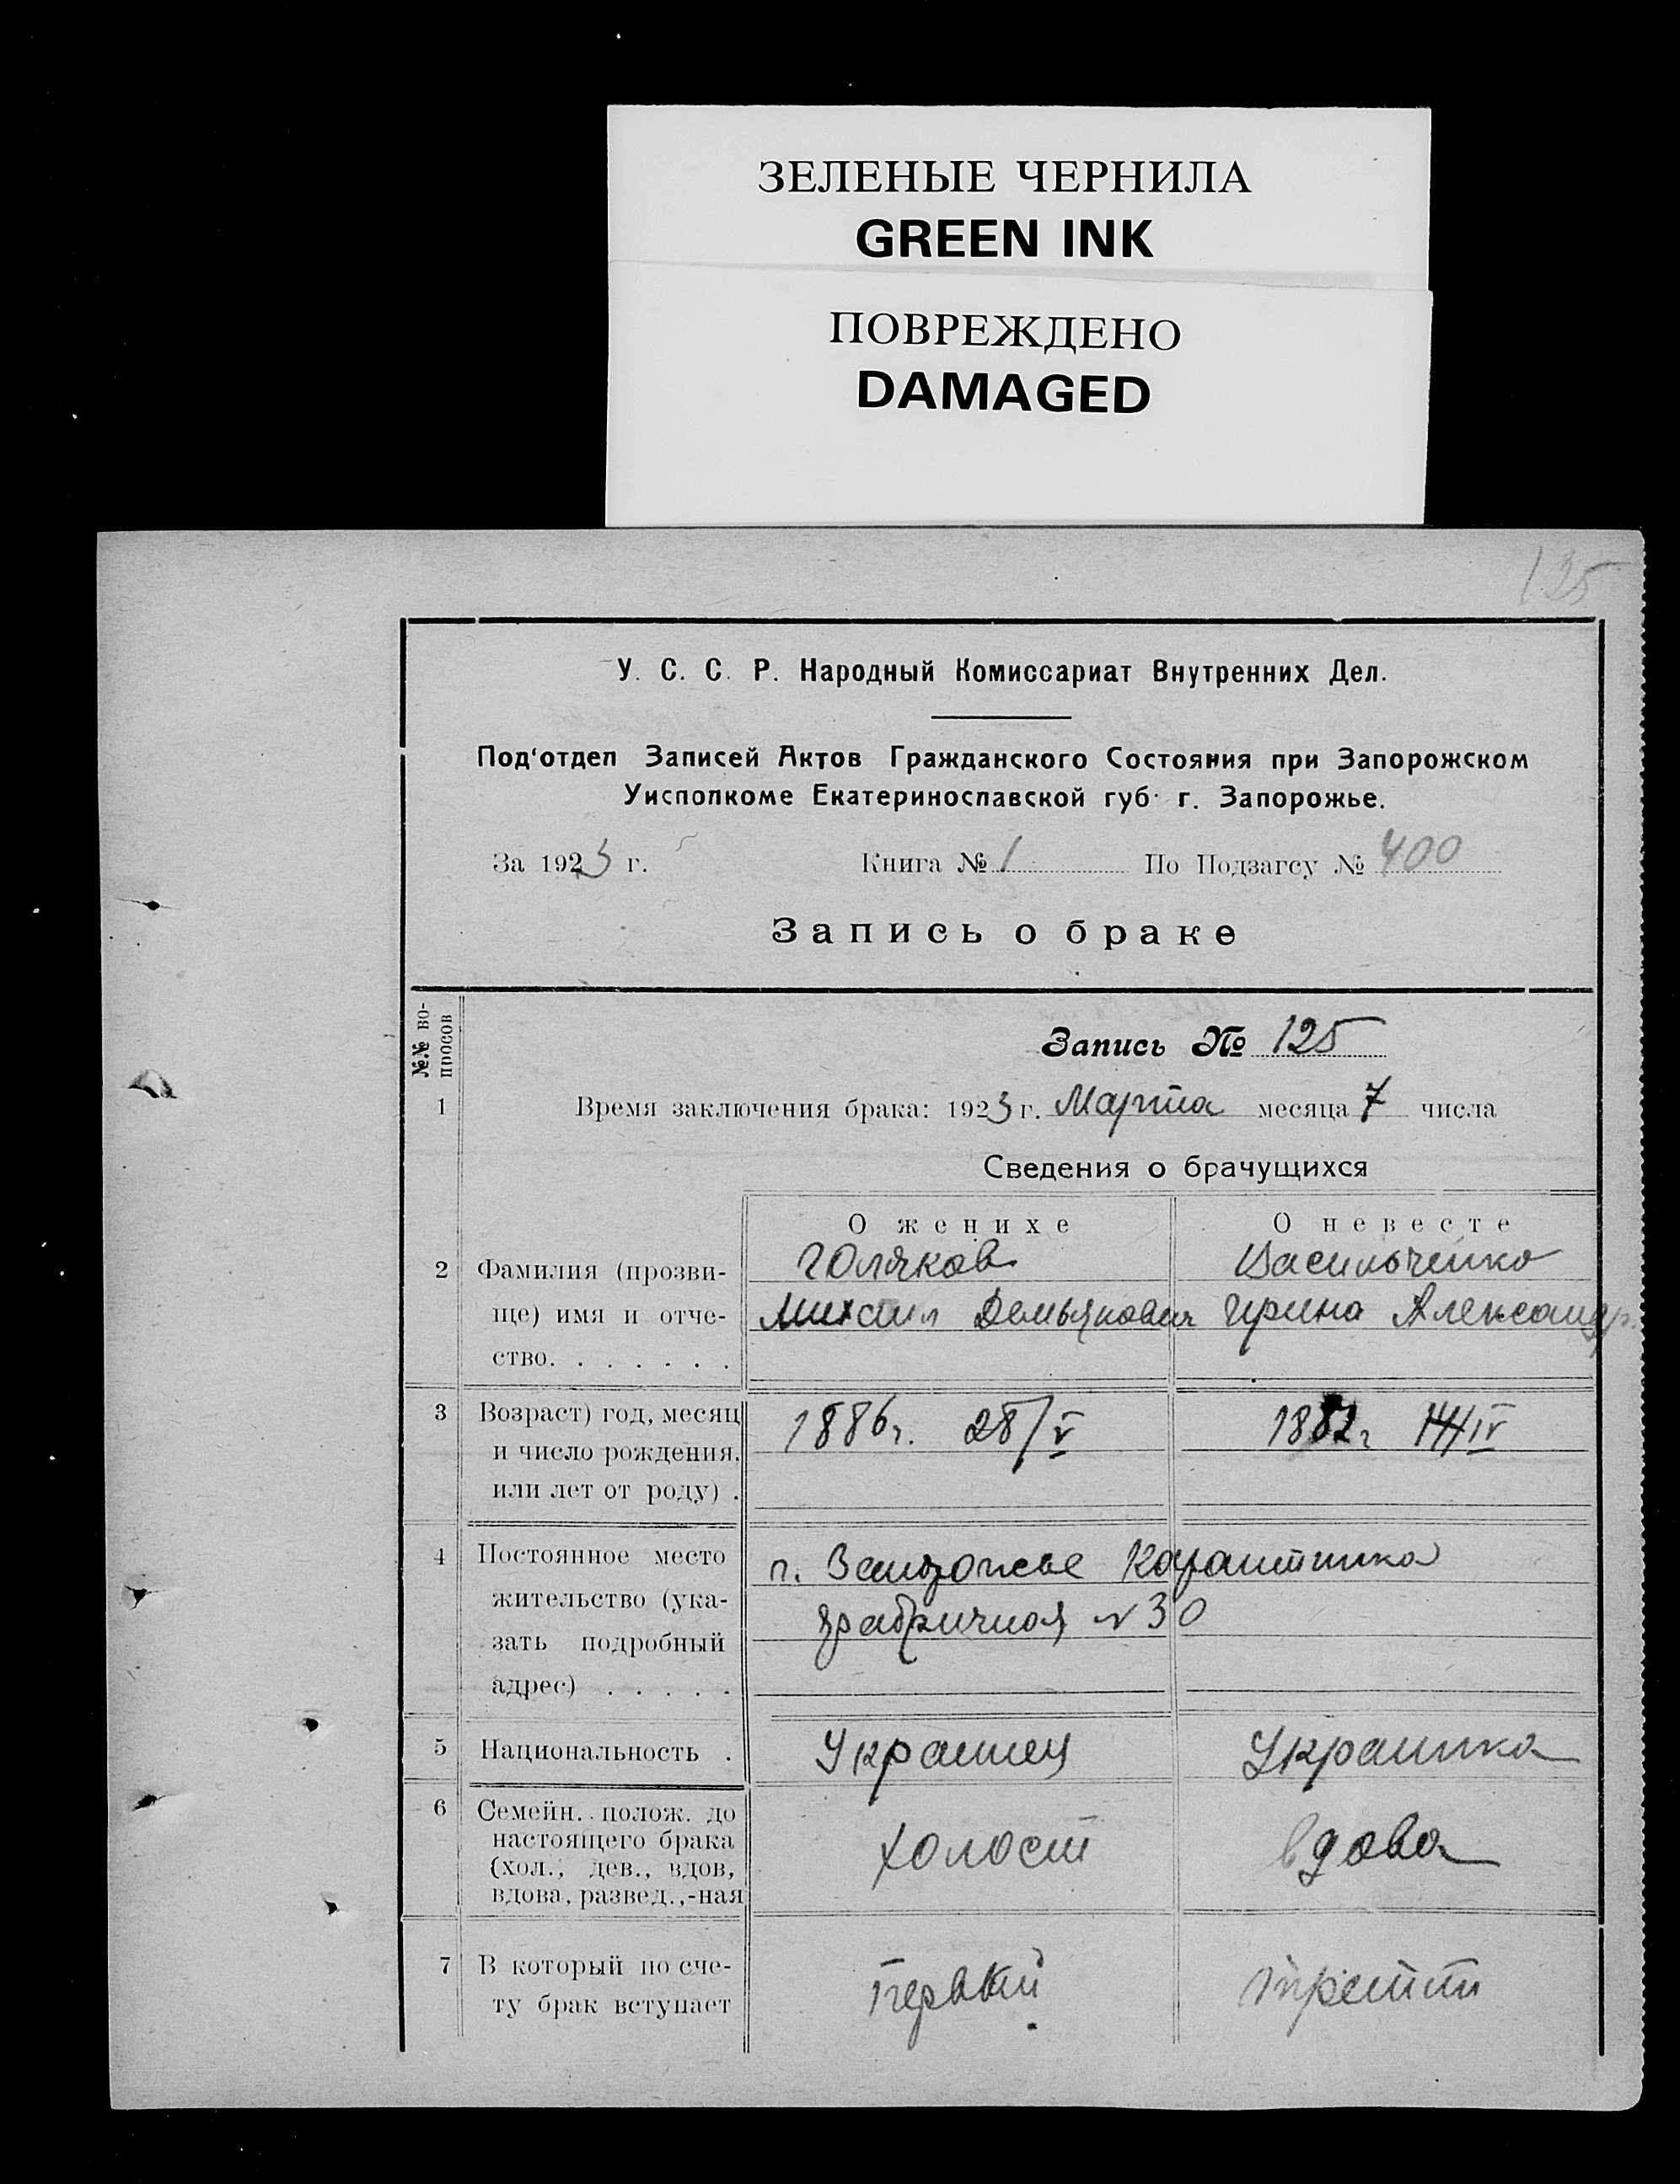 ЗЕЛЕНЫЕ ЧЕРНИЛА
GREEN INK
ПОВРЕЖДЕНО
DAMAGED
135
У. С. С. Р. Народный Комиссариат Внутренних Дел.
Под'отдел Записей Актов Гражданского Состояния при Запорожском
Уисполкоме Екатеринославской губ. г. Запорожье.
За 1923 г. Книга № 1 По Подзагсу № 400
Запись о браке
№№ во-
просов
Запись № 125
1 Время заключения брака: 1923 г. Марта месяца 7 числа
Сведения о брачущихся
О женихе О невесте
2 Фамилия (прозви- Васильченко
ще) имя и отче- Михаил Демьянович Ирина Александр.
ство. . . . . . .
3 Возраст) год, месяц 1886г. 28/V 1882г 14/IV
и число рождения.
или лет от роду) .
4 Постоянное место г. Запорожье Карантинка
жительство (ука- фабричная № 30
зать подробный
адрес) . . . . .
5 Национальность . Украинец Украинка
6 Семейн. полож. до
настоящего брака холост вдова
(хол., дев., вдов,
вдова, развед.,-ная
7 В который по сче- Первый третий
ту брак вступает